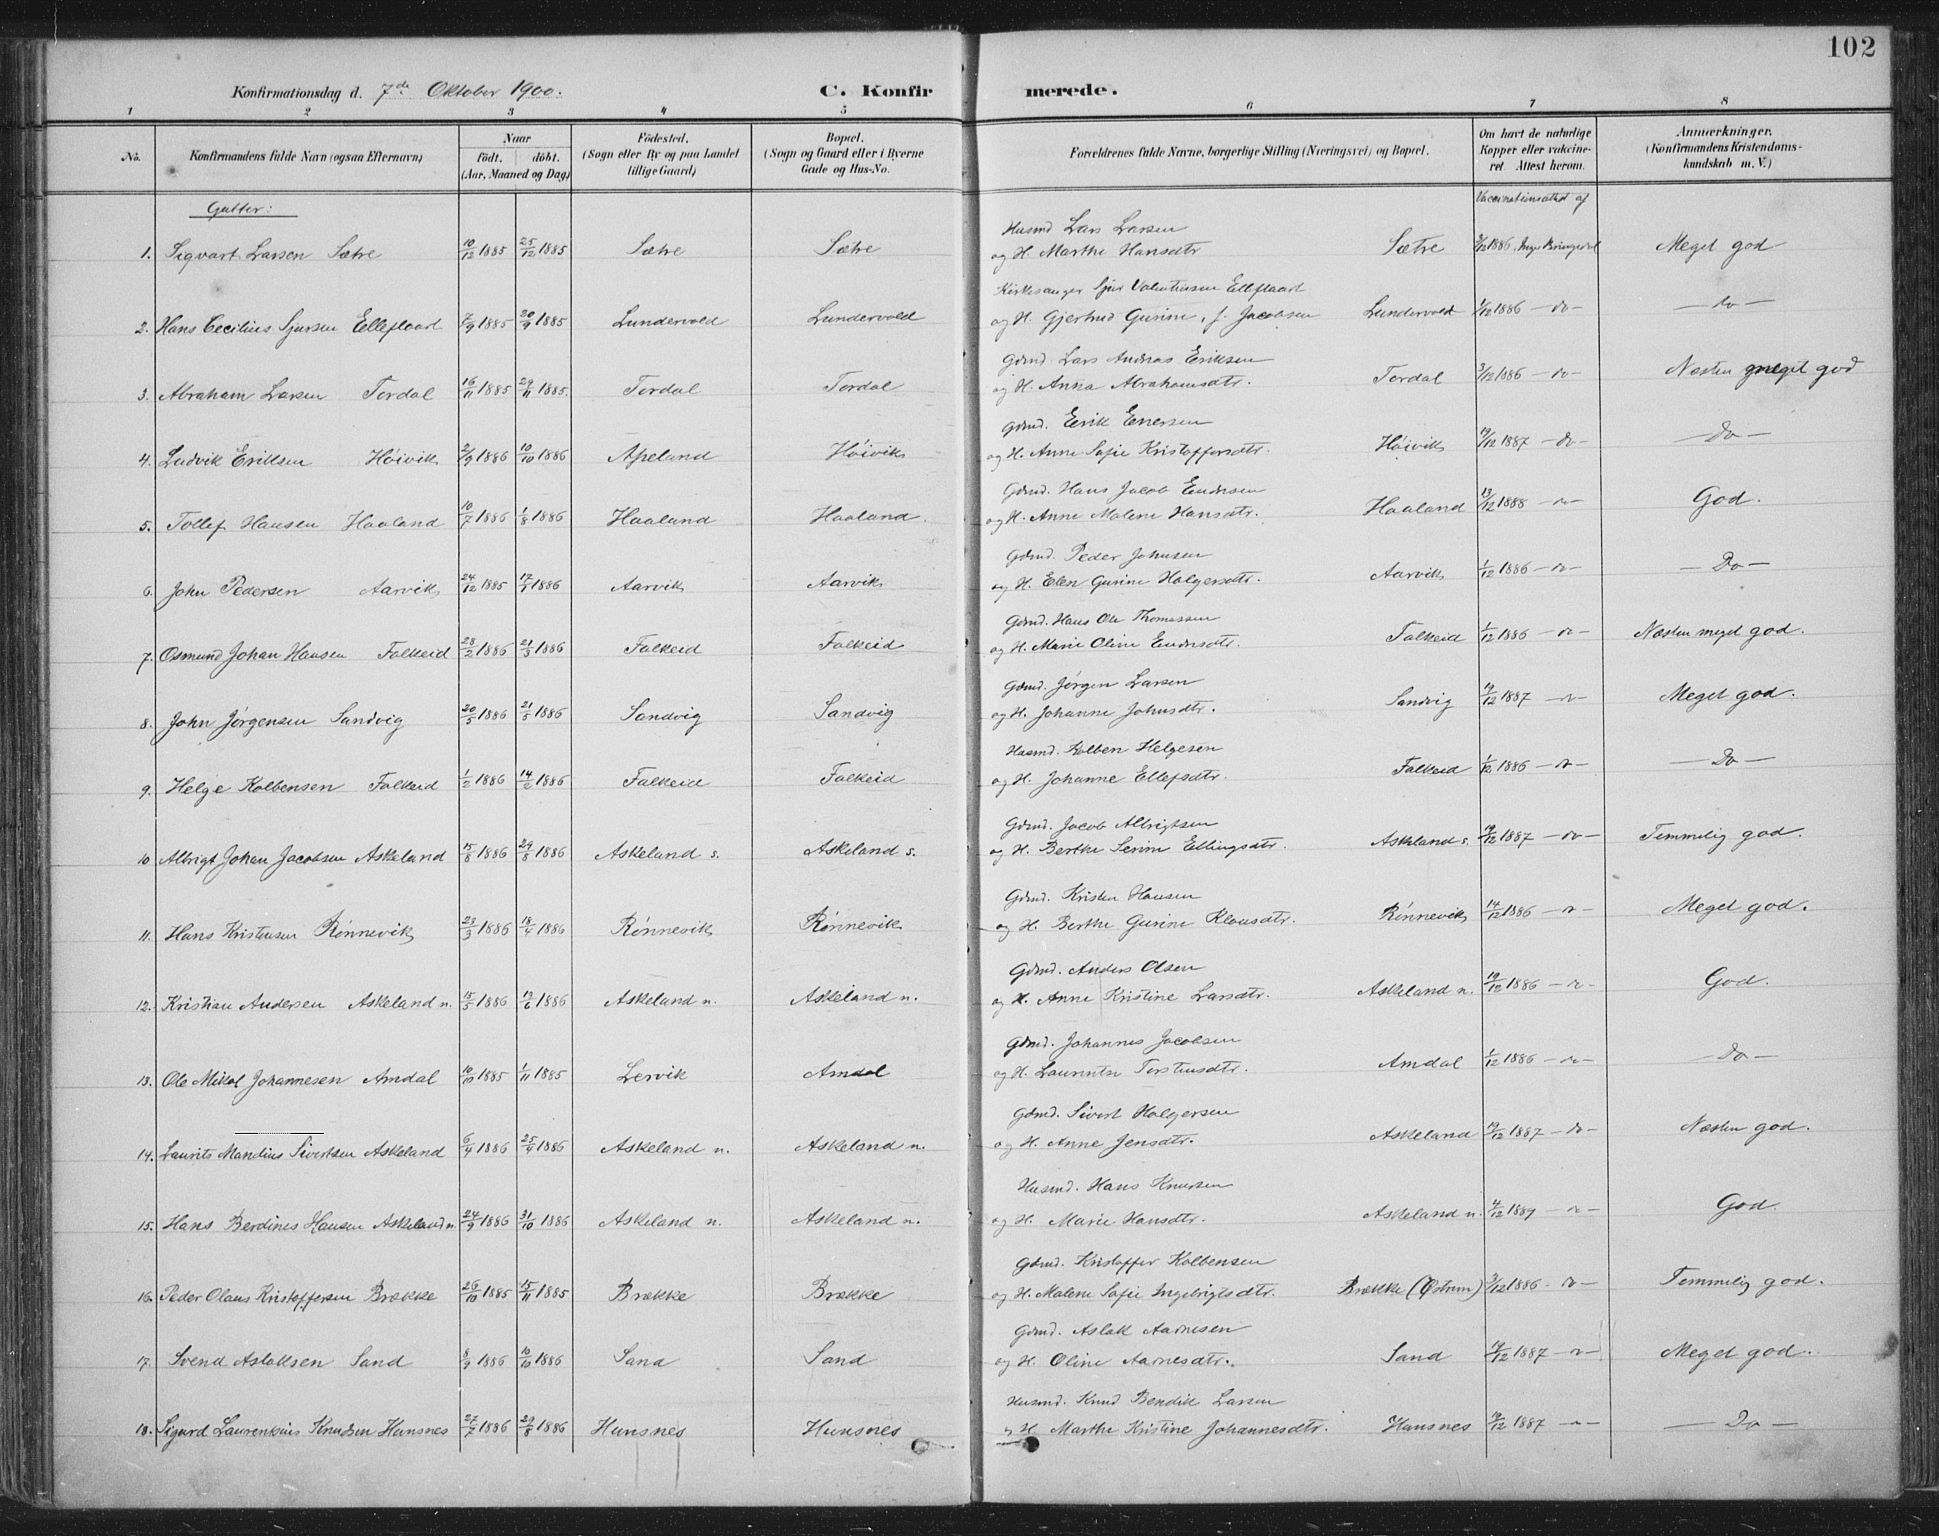 102
Konfirmationsdag d. 7de Oktober 1900. C. Konfirmerede.
1 2 3 4 5 6 7 8
No. Konfirmandens fulde Navn (ogsaa Efternavn) Naar født. døbt. (Aar, Maaned og Dag) Fødested. (Sogn eller By og paa Landet tillige Gaard) Bopæl. (Sogn og Gaard eller i Byerne Gade og Hus-No. Forældrenes fulde Navne, borgerlige Stilling (Næringsvei) og Bopæl. Om havt de naturlige Kopper eller vaccineret. Attest herom. Anmærkninger. (Konfirmandens Kristendomskundskab m. V.)
Gutter: Vaccinationsattest af
Husmd Lars Larsen
1. Sigvart Larsen Sætre 10/12 1885 25/12 1885 Sætre Sætre og H. Marthe Hansdtr Sætre 1886 Meget god
Kirkesanger Sjur Valentinsen Elleflaadt
2. Hans Cecilius Sjursen Elleflaadt 7/9 1885 20/9 1885 Lundervold Lundervold og H. Gjertrud Gurine, f. Jacobsen Lundervold 1/12 1886 - do - - do -
Gdmd. Lars Andreas Eriksen
3. Abraham Larsen Tordal 16/11 1885 29/11 1885. Tordal Tordal og H. Anna Abrahamsdtr. Tordal 3/12 1886 - do - Næsten meget god
Gdmd. Erik Enersen
4. Ludvik Eriksen Høivik 2/9 1886 10/10 1886 Apeland Høivik og H. Anne Sofie Kristoffersdtr. Høivik 19/12 1887 - do - - Do -
Gdmd. Hans Jacob Endresen
5. Tollef Hansen Haaland 10/7 1886 1/8 1886 Haaland Haaland. og H. Anne Malene Hansdtr. Haaland 13/12 1888 - " - God.
Gdmd. Peder Johnsen
6. John Pedersen Aarvik 24/12 1885 17/1 1886 Aarvik Aarvik og H. Elen Gurine Holgersdtr. Aarvik 1/12 1886 - " - - Do -
Gdmd. Hans Ole Thomassen
7. Osmund Johan Hansen Falkeid 28/2 1886 21/3 1886 Falkeid Falkeid og H. Marie Oline Endresdtr. Falkeid 1/12 1886 - do - Næsten meget god.
Gdmd. Jørgen Larsen
8. John Jørgensen Sandvig 20/5 1886 21/5 1886 Sandvig Sandvig og H. Johanne Johnsdtr. Sandvig 19/12 1887 - " - Meget god.
Husmd. Kolben Helgesen
9. Helge Kolbensen Falkeid 1/2 1886 14/2 1886 Falkeid Falkeid og H. Johanne Ellefsdtr. Falkeid 1/12 1886 - " - - Do -
Gdmd. Jacob Albrigtsen
10 Albrigt Johan Jacobsen Askeland 15/8 1886 29/8 1886 Askeland s. Askeland s. og H. Berthe Serine Ellingsdtr. Askeland s. 19/12 1887 - do - Temmelig god.
Gdmd. Kristen Hansen
11. Hans Kristensen Rønnevik 23/3 1886 18/4 1886 Rønnevik Rønnevik og H. Berthe Gurine Klausdtr. Rønnevik 14/12 1886 - " - Meget god.
Gdmd. Anders Olsen
12. Kristian Andersen Askeland n. 15/5 1886 1886 Askeland n. Askeland n. og H. Anne Kristine Larsdtr. Askeland n. 19/12 1886 - " - God.
Gdmd. Johannes Jacobsen
13. Ole Mikal Johannesen Amdal 10/10 1885 1/11 1885 Lervik Amdal og H. Laurentse Torstensdtr. Amdal 1/12 1886 - do - - Do -
Gdmd. Sivert Holgersen
14. Laurits Mandius Sivertsen Askeland 6/4 1886 25/4 1886 Askeland n. Askeland n. og H. Anne Jensdtr. Askeland 19/12 1887 - do - Næsten god.
Husmd. Hans Knudsen
15. Hans Berdines Hansen Askeland n. 24/9 1886 31/10 1886 Askeland n. Askeland n. og H. Marie Hansdtr. Askeland n. 4/12 1889 - " - God.
Gdmd. Kristoffer Kolbensen
16. Peder Olaus Kristoffersen Brække 26/10 1885 15/11 1885 Brække Brække og H. Malene Sofie Ingebrigtsdtr. Brække (Østrem) 3/12 1886 - do - Temmelig god.
Gdmd. Aslak Aarnesen
17. Svend Aslaksen Sand 8/9 1886 10/10 1886 Sand Sand og H. Oline Aarnesdtr. Sand 19/12 1887 - " - Meget god.
Husmd. Knud Bendik Larsen
18. Sigurd Laurentius Knudsen Hunsnes 27/7 1886 29/8 1886 Hunsnes Hunsnes og H. Marthe Kristine Johannesdtr. Hunsnes 19/12 1887 - " - - Do -